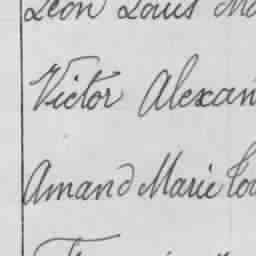 Léon Louis Ma
Victor Alexan
Amand Marie Lou